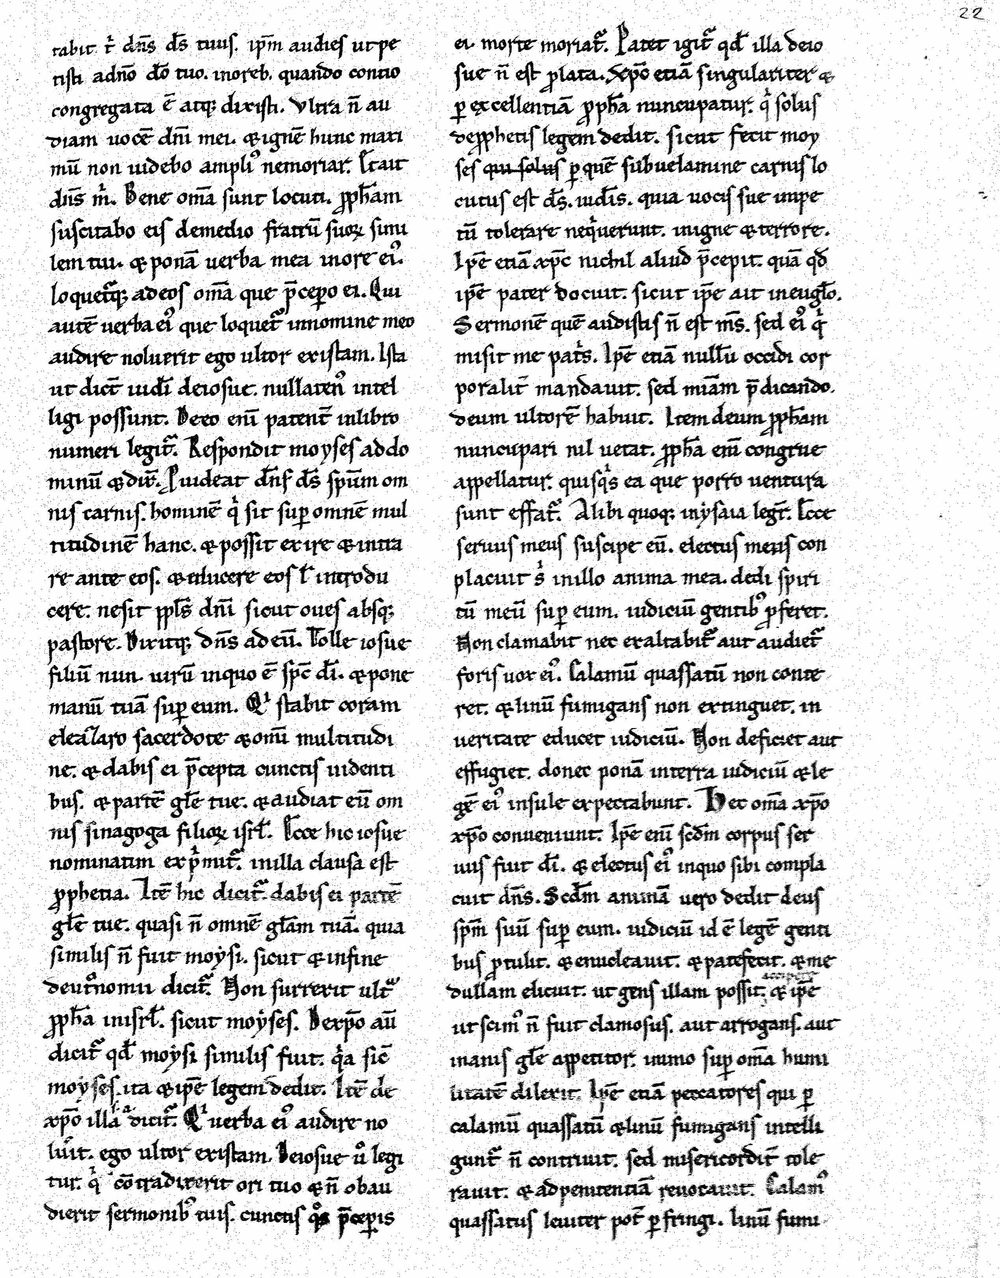 22
tabit t̄ dn̄s d̄s tuus. ip̄m audies ut pe
tisti adn̄o d̄o tuo. inoreb. quando contio
congregata ē atq; dixisti. Vltra n̄ au
diam uocē dn̄i mei. & ignē hunc maxi
mū non uidebo ampliꝰ nemoriar. Et ait
dn̄s m̄. Bene om̄a sunt locuti. ꝓph̄am
suscitabo eis demedio fratrū suoꝝ simi
lem tui. & ponā uerba mea inore eiꝰ.
loquet᷑q; adeos om̄a que p̄cepo ei. Qui
autē uerba eiꝰ que loquet᷑ innomine meo
audire noluerit ego ultor existam. Ista
ut dict̄ iudi deiosue. nullatenꝰ intel
ligi possunt. Deeo enī patent̄ inlibro
numeri legit᷑. Respondit moyses addo
minū & dix̄. Puideat dn̄s d̄s sp̄um om
nis carnis. hominē q̄ sit suꝑ omnē mul
titudinē hanc. & possit exire & intra
re ante eos. & educere eos ł introdu
cere. nesit ppl̄s dn̄i sicut oues absq;
pastore. Dixitq; dn̄s ad eū. Tolle iosue
filiū nun. uirū inquo ē sp̄c d̄i. & pone
manū tuā suꝑ eum. Qͥ stabit coram
eleazaro sacerdote & omī multitudi
ne. & dabis ei p̄cepta cunctis uidenti
bus. & partē gl̄e tue. & audiat eū om
nis sinagoga filioꝝ isrł. Ecce hic iosue
nominatim exp̄mit᷑. inilla clausa est
ꝓphetia. Itē hic dicit᷑. dabis ei partē
gl̄e tue. quasi n̄ omnē gl̄am tuā. quia
similis n̄ fuit moẏsi. sicut & infine
deut̄nomii dicit᷑. Non surrexit ult᷑
ꝓph̄a inisrł. sicut moẏses. Dexp̄o aū
dicit᷑ qd̄ moẏsi similis fuit. q̄a sic̄
moẏses. ita & ip̄e legem dedit. Itē de
xp̄o illa dicit᷑. Qͥ uerba eiꝰ audire no
luit. ego ultor existam. Deiosue ū legi
tur. q̄ cōtradixerit ori tuo & n̄ obau
dierit sermonibꝰ tuis. cunctis qͦs p̄ceperis
ei. morte moriat᷑. Patet igit᷑ qd̄ illa deio
sue n̄ est ꝓlata. Xp̄o etiā singulariter &
ꝑ excellentiā ꝓph̄a nuncupatur. q̄ solus
deꝓphetis legem dedit. sicut fecit moy
ses qui solus ꝑ quē subuelamine carnis lo
cutus est d̄s. iud̄is. quia uocis sue impe
tū tolerare neq̄uerunt. inigne & terrore.
Ip̄e etiā xp̄c nichil aliud p̄cepit. quā qd̄
ip̄e pater docuit. sicut ip̄e ait ineuglo.
Sermonē quē audistis n̄ est m̄s. sed eiꝰ q̄
misit me pat̄s. Ip̄e etiā nullū occidi cor
poralit̄ mandauit. sed miām p̄dicando.
deum ultorē habuit. Item deum ꝓph̄am
nuncupari nil uetat. ꝓph̄a enī congrue
appellatur. quisq̄s ea que porro uentura
sunt effat᷑. Alibi quoq; inẏsaia legt̄. Ecce
seruus meus suscipe eū. electus meus con
placuit s̄ inillo anima mea. dedi spiri
tū meū suꝑ eum. iudiciū gentibꝰ ꝓferet.
Non clamabit nec exaltabit᷑ aut audiet᷑
foris uox eiꝰ. Calamū quassatū non conte
ret. & linū fumigans non extinguet. in
ueritate educet iudiciū. Non deficiet aut
effugiet. donec ponā interra iudiciū & le
gē eiꝰ insule expectabunt. Hec om̄a xp̄o
xp̄o conueniunt. Ip̄e enī scd̄m corpus ser
uus fuit d̄i. & electus eiꝰ inquo sibi compla
cuit dn̄s. Scd̄m animā uero dedit deus
sp̄m suū suꝑ eum. iudiciū id ē legē genti
bus ꝓtulit. & enucleauit. & patefecit. & me
dullam elicuit. ut gens illam possit accipere. & ip̄e
ut scimꝰ n̄ fuit clamosus. aut arrogans. aut
inanis gl̄e appetitor. immo suꝑ om̄a humi
litatē dilexit. Ip̄e etiā peccatores qui ꝑ
calamū quassatū & linū fumigans intelli
gunt᷑ n̄ contriuit. sed misericordit̄ tole
rauit. & ad penitentiā reuocauit. Calamꝰ
quassatus leuiter pot̄ ꝑfringi. linū fumi